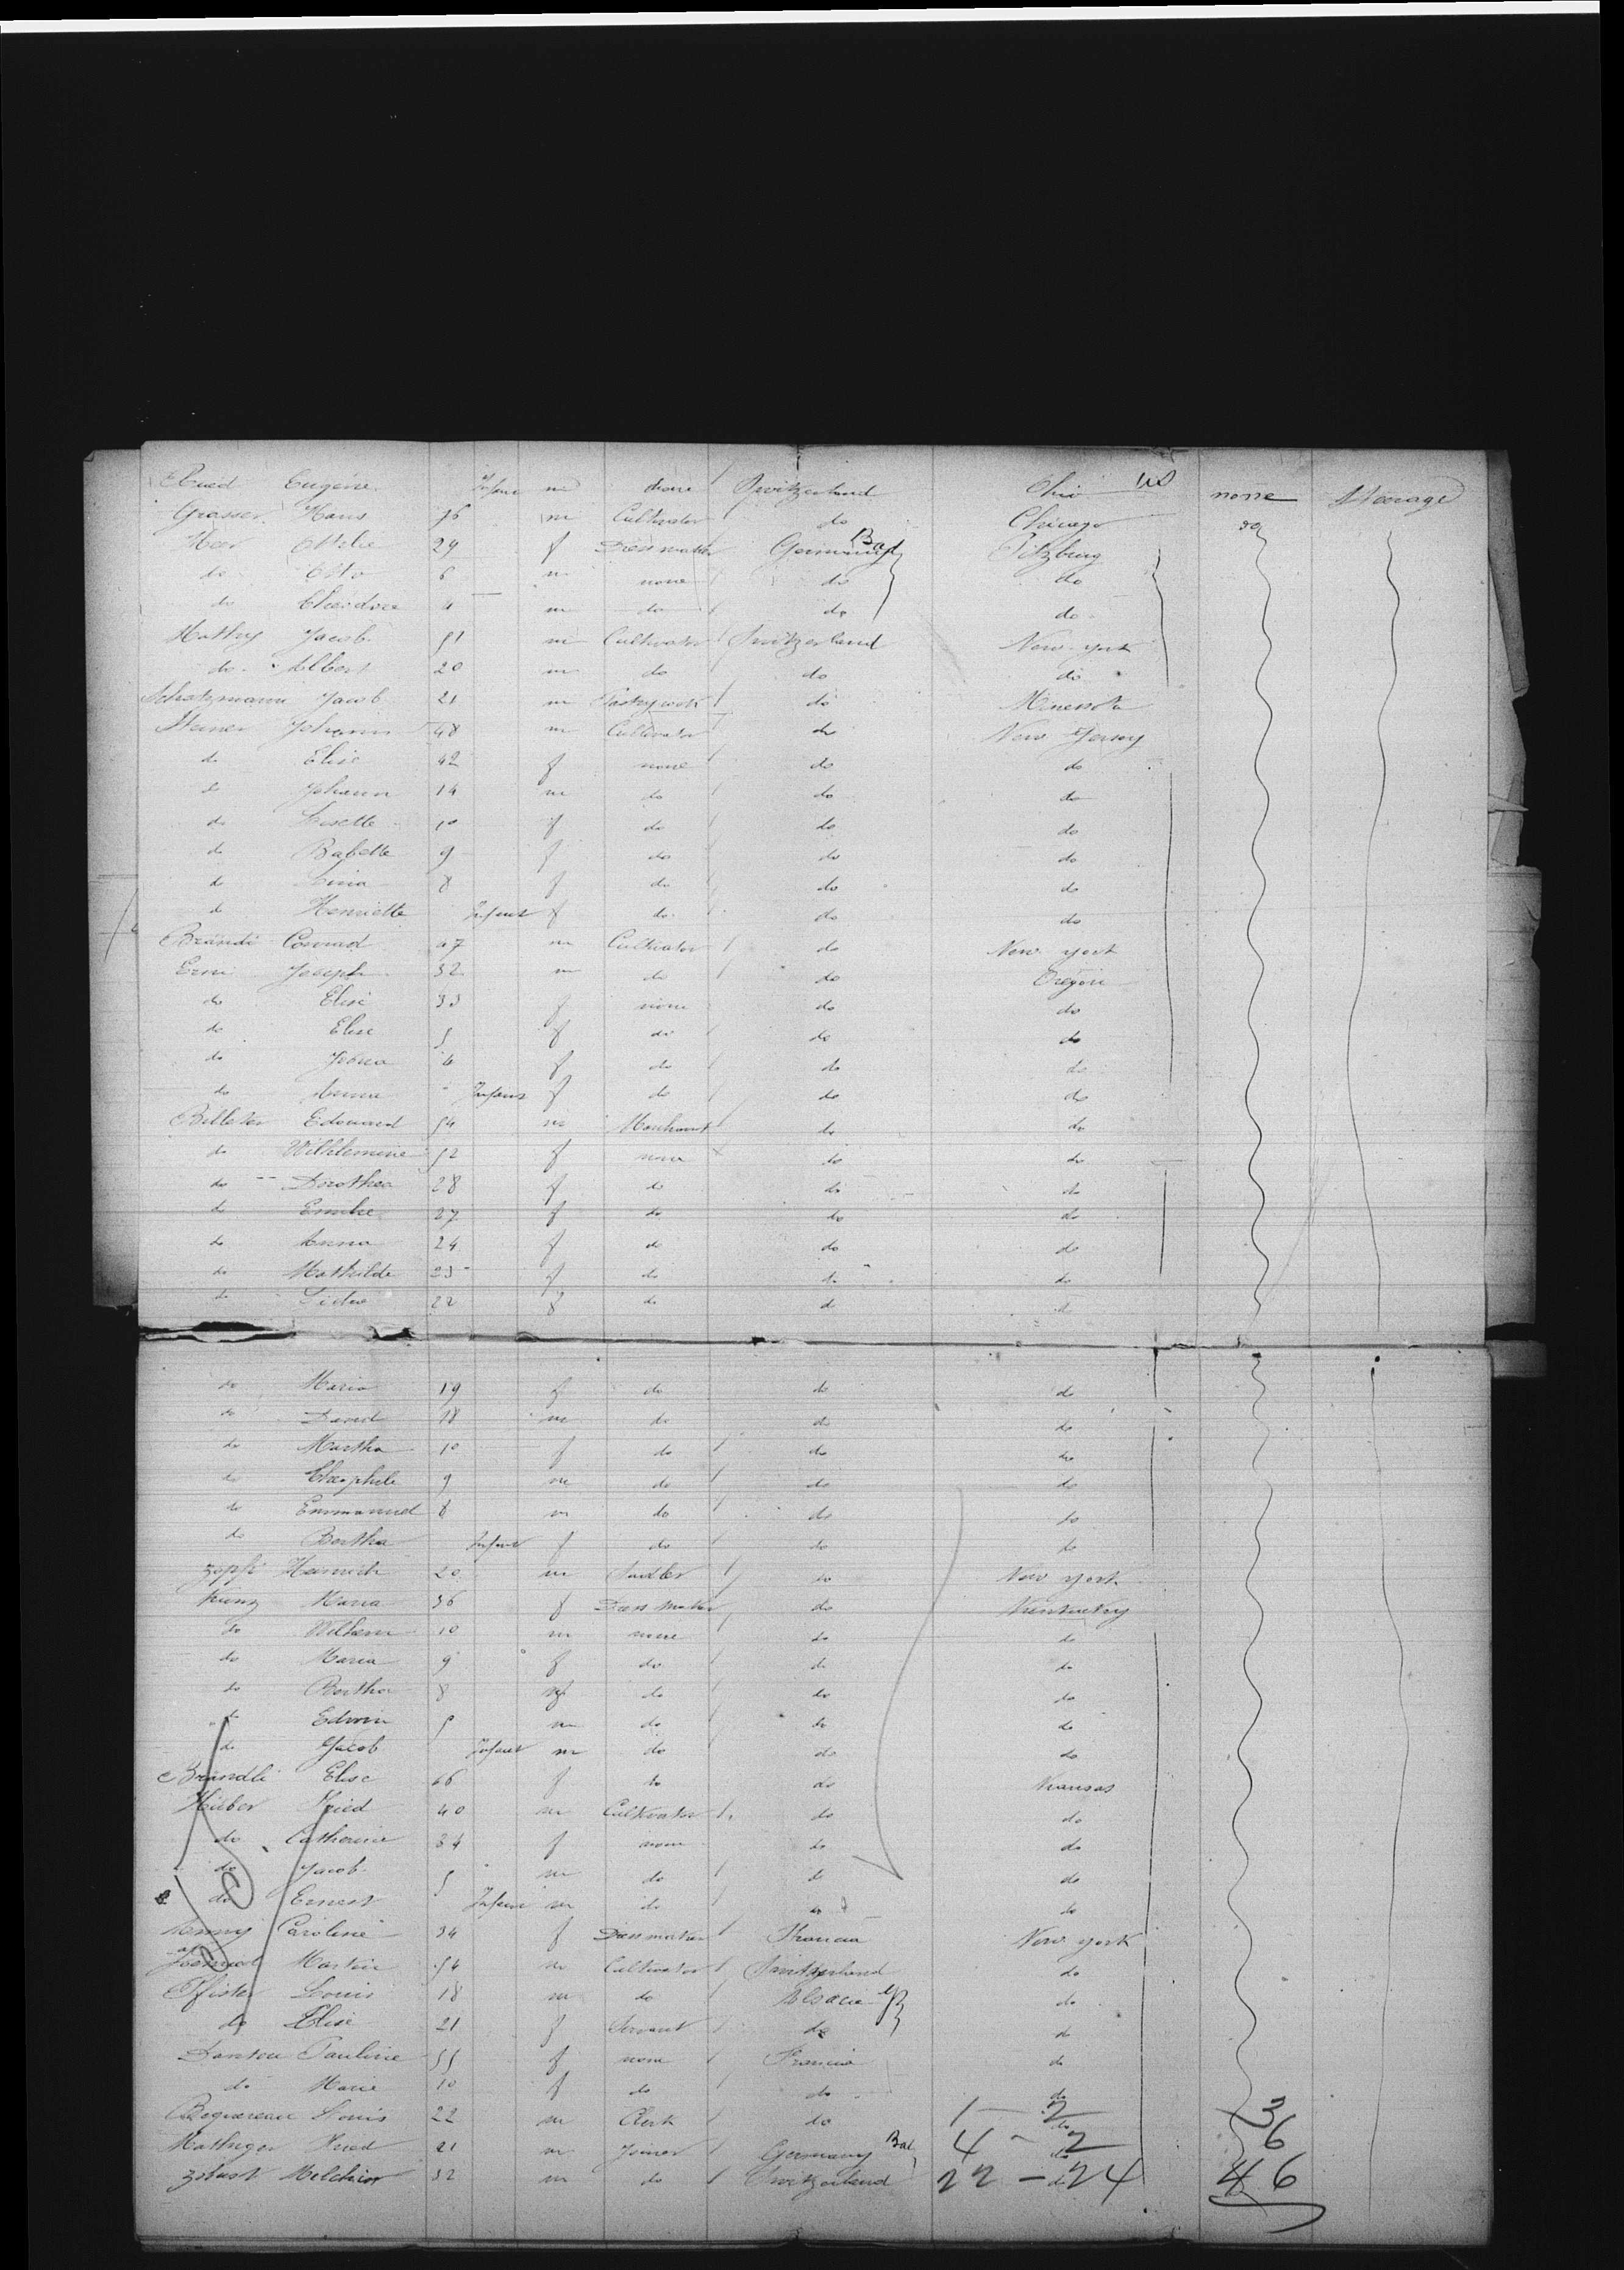 Eugène Infant m Switzerland Ohio none Steerage
Grasser Hans 36 m Cultivator do Chicago do
Heer Ottilie 29 f Dressmaker Germany Bad Pitzburg
do Otto 6 m none do do
do Theodore 4 m do do do
Hathy Jacob 51 m Cultivator Switzerland New-york
do Albert 20 m do do do
Schatzmann Jacob 21 m do Minessota
Steiner Johann 48 m Cultivator do New Jersey
do Elise 42 f none do do
do Johann 14 m do do do
do Lisette 10 f do do do
do Babette 9 f do do do
do Lina 8 f do do do
do Henriette Infant f do do do
Brändli Conrad 47 m Cultivator do New york
Erni Joseph 32 m do do Oregon
do Elise 33 f none do do
do Elise 5 f do do do
do 4 f do do do
do Anna Infant f do do do
Billeter Edouard 54 m do do
do Wilhlemine 52 f none do do
do Dorothea 28 f do do do
do Emilie 27 f do do do
do Anna 24 f do do do
do Mathilde 23 f do do do
do 22 f do do do
do Maria 19 f do do do
do David 18 m do do do
do Martha 10 f do do do
do Theophile 9 m do do do
do Emmanuel 8 m do do do
do Bertha Infant f do do do
Zopfi Heinrich 20 m Sadler do New york
Kunz Maria 36 f Dressmaker do Kentucky
do Wilhem 10 m none do do
do Maria 9 f do do do
do Bertha 8 f do do do
do Edwin 5 m do do do
do Jacob Infant m do do do
Brändli Elise 66 f do do Kansas
Hüber Fried 40 m Cultivator do do
do Catherine 34 f none do do
do Jacob 5 m do do do
do Ernest Infant m do do do
Caroline 34 f Dressmaker Francia New york
Martin 54 m Cultivator Switzerland do
Pfister Louis 18 m do Alsacia do
do Elise 21 f Servant do do
Pauline 55 f none Francia do
do Marie 10 f do do do
Louis 22 m Clerk do do 1 - 2 3
Fried 21 m Joiner Germany Bad do 4 - 2 6
Melchior 32 m do Switzerland do 22 - 24 46